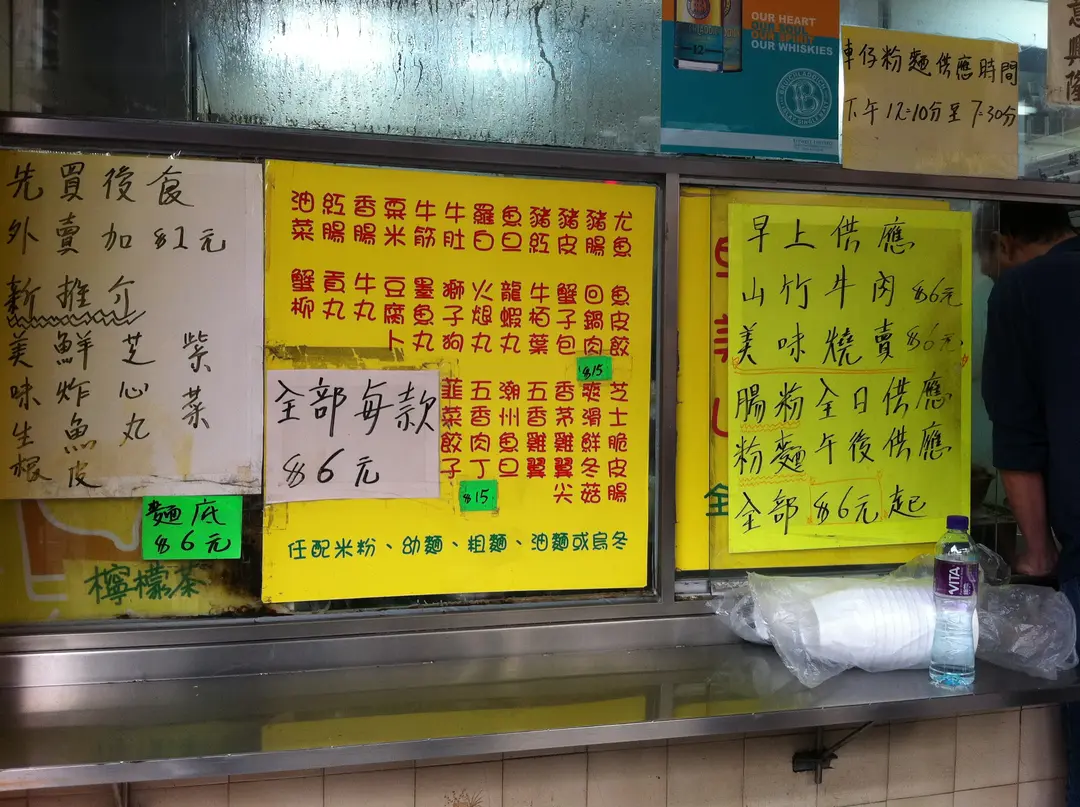 先買後食
外賣加$1元
新推介
美味生根
鮮炸魚皮
芝心丸
紫菜
麵底
$6元
檸檬茶
油菜
紅腸
香腸
粟米
牛筋
牛肚
羅白
魚旦
豬紅
豬皮
豬腸
尤魚
蟹柳
貢丸
牛丸
豆腐卜
墨魚丸
獅子狗
火煺丸
龍蝦丸
牛栢葉
蟹子包
回鍋肉
魚皮餃
$15
全部每款
$6元
韮菜餃子
五香肉丁
潮州魚旦
五香雞翼
香茅雞翼尖
爽滑鮮冬菇
芝士脆皮腸
$15
任配米粉、幼麵、粗麵、油麵或烏冬
OUR HEART
OUR SOUL
OUR SPIRIT
OUR WHISKIES
12
車仔粉麵供應時間
下午12:10分至7:30分
意興隆
早上供應
山竹牛肉$6元
美味燒賣$6元
腸粉全日供應
粉麵午後供應
全部$6元起
全
VITA